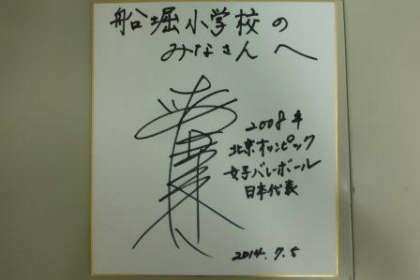 船堀小学校の
みなさんへ
2008年
北京オリンピック
女子バレーボール
日本代表
2014.7.5